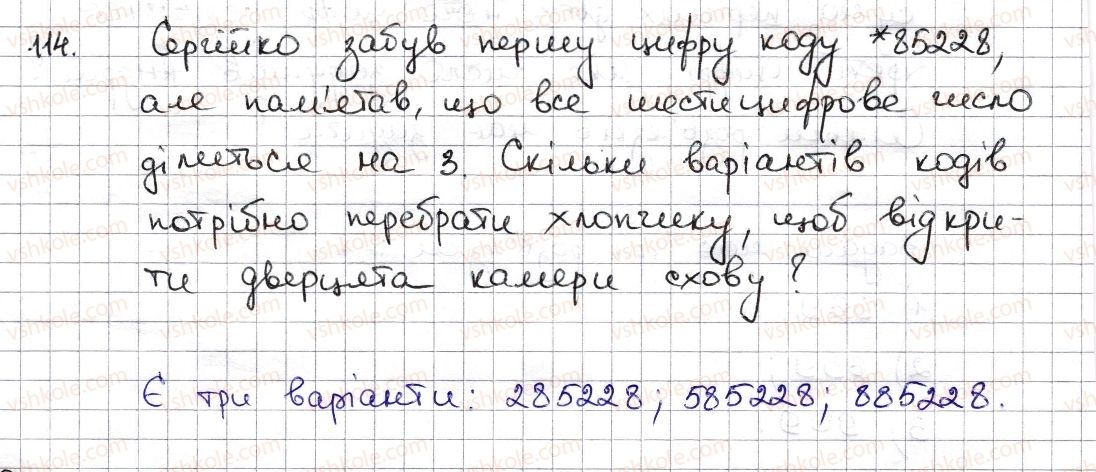 114. Сергійко забув першу цифру коду *85228,
але пам'ятав, що все шестицифрове число
ділиться на 3. Скільки варіантів кодів
потрібно перебрати хлопчику, щоб відкри-
ти дверцята камери схову?
Є три варіанти: 285228; 585228; 885228.